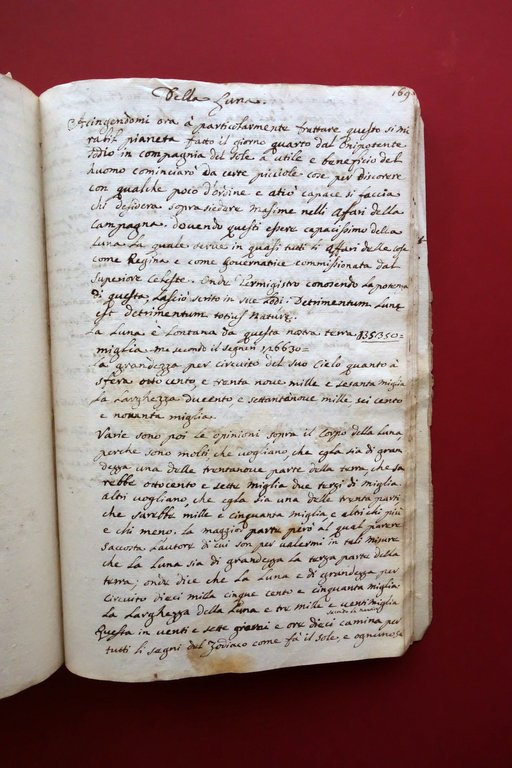 Della Luna.
169
Accingendomi ora à particularmente trattare questo si mi
rabil pianeta fatto il giorno quarto dal Onipotente
Iddio in compagnia del Sole à utile e beneficio del
huomo cominciarò da certe picciole cose per discorere
con qualche poco d'ordine e atiò capace si faccia
chi desidera sopra siedere masime nelli Afari della
Campagna, dovendo questi essere capacissimo della
Luna la quale serve in quasi tutti li afari delle cose
come Regina e come governatrice commissionata dal
superiore Celeste. Onde l'Ermigistro conosendo la potenza
di questa, Lasciò scrito in sue Lodi: Detrimentum Lunę
est detrimentum totius Naturę.
La Luna è Lontana da questa nostra terra 135350=
miglia, ma secondo il segneri 126630=
La grandezza per circuito del suo Cielo quanto à
sfera otto cento, e trenta nove mille e sesanta miglia
La Larghezza ducento, e settantanove mille sei cento
e novanta miglia.
Varie sono poi le opinioni sopra il Corpo della Luna,
perche sono molti che vogliano, che egla sia di gran
dezza una delle trentanove parte della terra, che sa
rebbe ottocento e sette miglia due terzi di miglia
altri vogliano, che egla sia una delle trenta parti
che sarebbe mille e cinquanta miglia e altri chi più
e chi meno. La maggior parte però al qual parere
s'accosta L'autore di cui son per valermi in tali misure
che la Luna sia di grandezza la terza parte della
terra; onde dice che La Luna è di grandezza per
circuito dieci mila cinque cento e cinquanta miglia
La Larghezza della Luna e tre mille e venti miglia
Questa in venti e sette giorni e ore dieci camina per
tutti li segni del Zodiaco come fà il Sole, e ognunosa